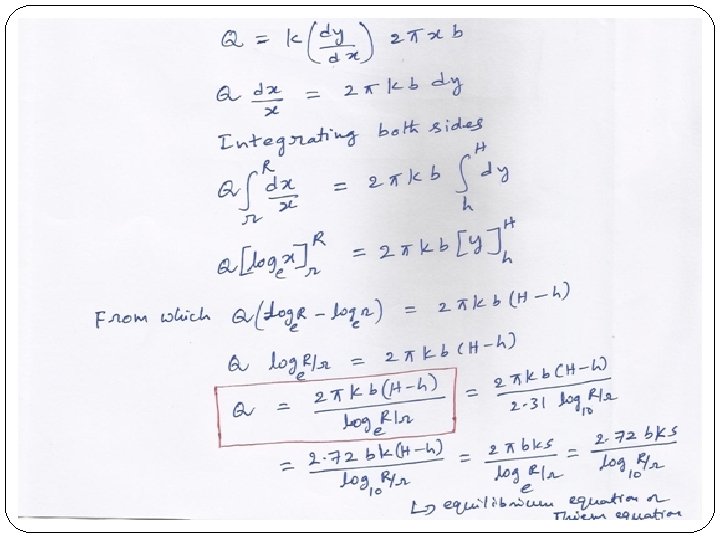 Q = k (dy/dx) 2πxb
Q dx/x = 2πkb dy
Integrating both sides
Q ∫_r^R dx/x = 2πkb ∫_h^H dy
Q [log_e x]_r^R = 2πkb [y]_h^H
From which Q (log_e R − log_e r) = 2πkb (H−h)
Q log_e R/r = 2πkb (H−h)
Q = 2πkb(H−h) / log_e R/r = 2πkb(H−h) / 2.31 log_10 R/r
= 2.72 bk(H−h) / log_10 R/r = 2πbks / log_e R/r = 2.72 bks / log_10 R/r
↳ equilibrium equation or
Thiem equation